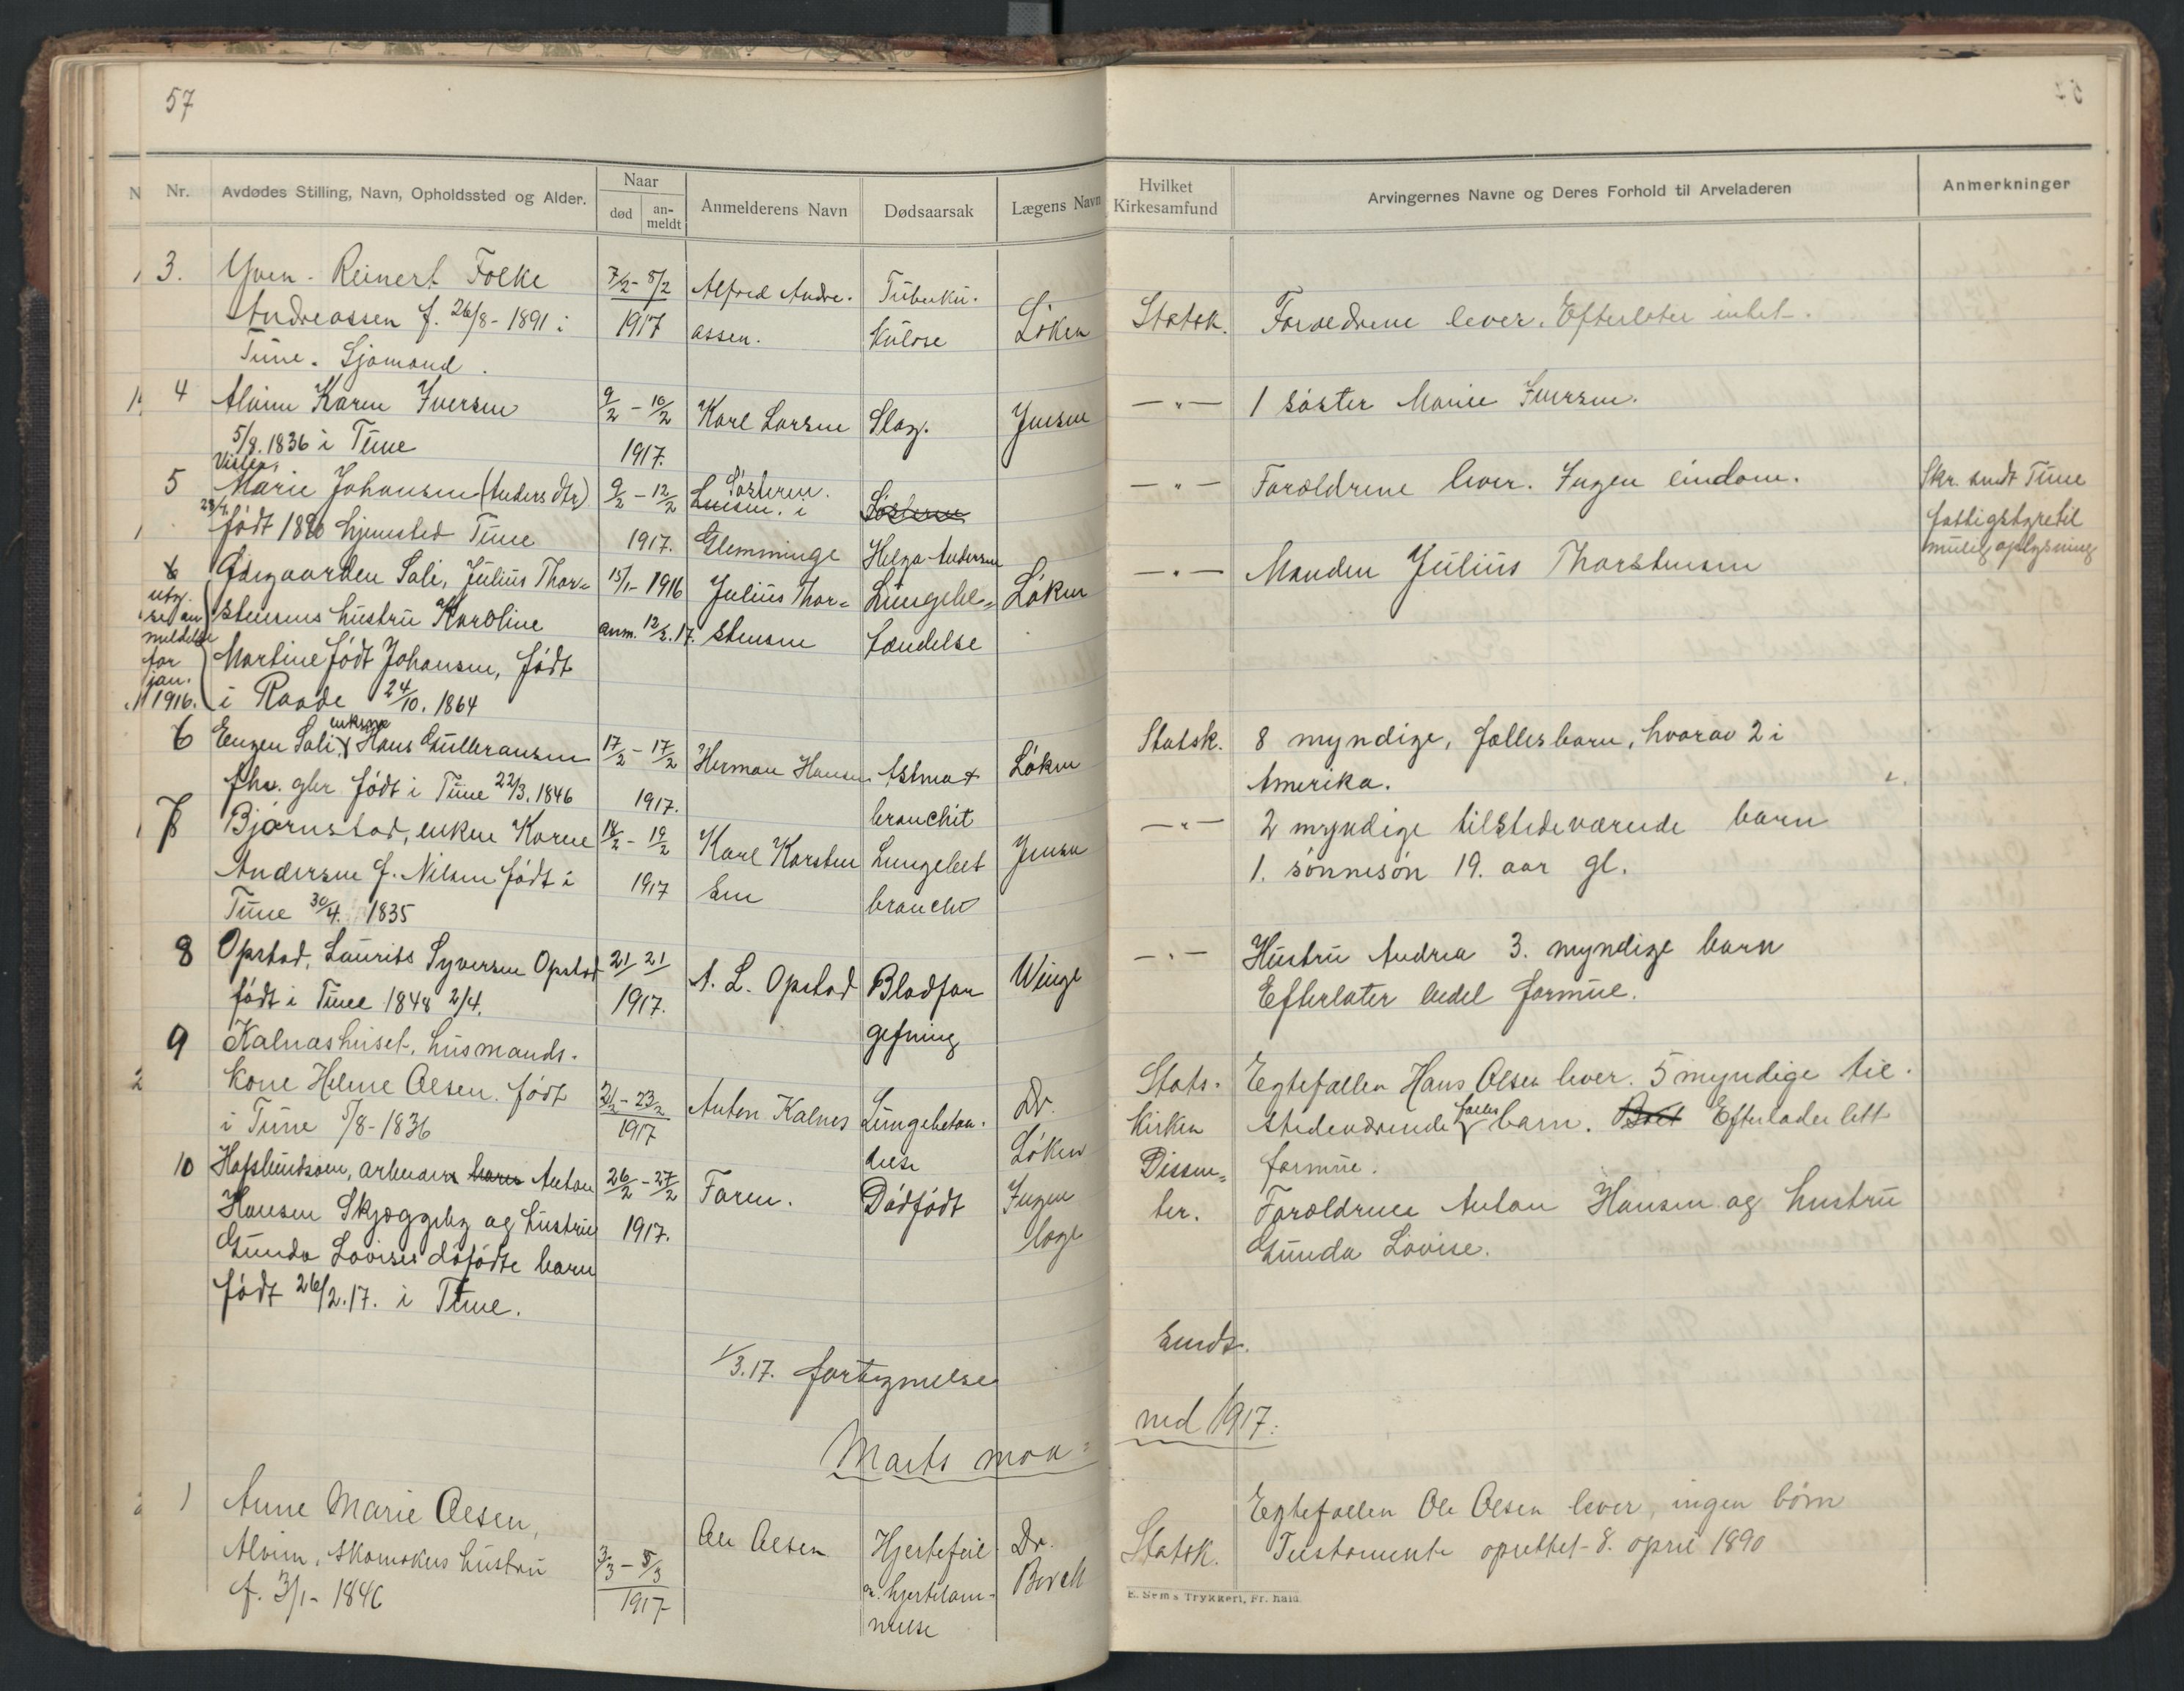 57
Nr. Avdødes Stilling, Navn, Opholdssted og Alder. Naar død an-meldt Anmelderens Navn Dødsaarsak Lægens Navn Hvilket Kirkesamfund Arvingernes Navne og Deres Forhold til Arveladeren Anmerkninger
3. Yven - Reinert Folke 7/2 - 8/2 Alfred Andre- Tuberku-
Andreassen f. 26/8 - 1891 i 1917 assen. kulose Løken Statsk. Foræedrene lever. Efterlater intet.
Tune. Sjømand.
4 Alvim Karen Iversen 9/2 - 10/2 Karl Larsen Slag. Jensen —"— 1 søster Marie Iversen.
5/8. 1836 i Tune 1917.
Vister,
5 Marie Johansen (Andersdtr) 9/2 - 12/2 Søsteren. i Søsteren —"— Forældrene lever. Ingen eindom. Skr. sendt Tune
født 1880 hjemsted Tune 1917. Glemminge Helga Andersen fattigstyre til
mulig oplysning
6 Ødegaarden Soli, Julius Thor= 15/1- 1916 Julius Thor= Lungebe= Løken —"— Manden Julius Thorstensen
utg. se an meldelse for jan. 1916.
stensens hustru Karoline anm. 12/2.17. stensen tændelse
Martine født Johansen, født
i Raade 24/10. 1864
6 Engen Soli, enkem Hans Gulbransen 17/2 - 17/2 Herman Hansen Astma + Løken Statsk. 8 myndige, fællesbarn, hvorav 2 i
fhv. gbr. født i Tune 22/3. 1846 1917. bronchit Amerika.
7 Bjørnstad, enken Karen 18/2 - 19/2 Karl Karsten Lungebet Jensen —"— 2 myndige tilstedeværende barn
Andersen f. Nilsen født i 1917 sen bronchit 1. sønnesøn 19. aar gl.
Tune 30/4. 1835
8 Opstad, Laurits Syversen Opstad 21/ 21/ A. L. Opstad Blodfor Winge —"— Hustru Andrea 3. myndige barn
født i Tune 1848 2/4. 1917. gifning Efterlater endel formue.
9 Kalnæshuset, husmands-
kone Helene Olsen. født 21/2 - 23/2 Anton Kalnes Lungebetæn- Dr. Stats- Egtefællen Hans Olsen lever. 5 myndige til-
i Tune 5/8 - 1836 1917 delse Løken Kirken stedeværende fælles barn. Boet Efterlader litt
formue.
10 Hafslundsøen, arbeider barn Anton 26/2 - 27/2 Faren. Dødfødt Ingen Dissen= ter. Forældrene Anton Hansen og hustru
Hansen Skjæggeby og hustru 1917. læge Gunda Lovise.
Gunda Lovises døfødte barn
født 26/2.17. i Tune.
1/3.17. fortegnelse sendt.
Marts maa= ned 1917.
1 Anne Marie Olsen, Egtefællen Ole Olsen lever, ingen börn
Alvim, skomakers hustru 3/3 - 5/3 Ole Olsen Hjertefeil Dr. Statsk. Testamente oprettet 8. april 1890
f. 3/1 - 1846 1917 o. hjertelam- Borch
melse
E. Sem's Trykkeri, Fr.hald